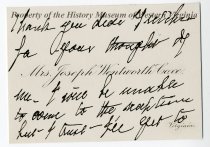 Property of the History Museum of Western Virginia
Thank you dear
for your thought of
Mrs. Joseph Wentworth
me - I will be unable
to come to the reception
but I trust I'll get to